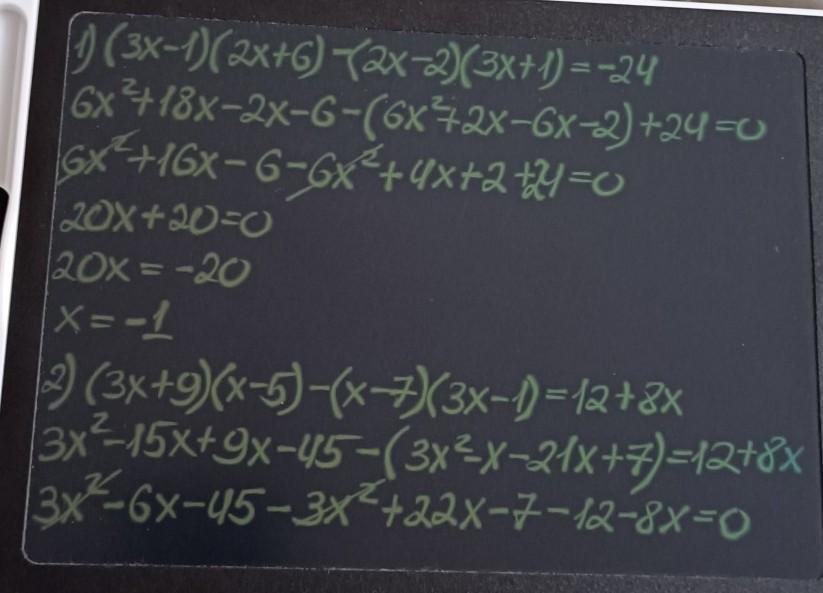 1) (3x-1)(2x+6)-(2x-2)(3x+1)=-24
6x²+18x-2x-6-(6x²+2x-6x-2)+24=0
6x²+16x-6-6x²+4x+2+24=0
20x+20=0
20x=-20
x=-1
2) (3x+9)(x-5)-(x-7)(3x-1)=12+8x
3x²-15x+9x-45-(3x²-x-21x+7)=12+8x
3x²-6x-45-3x²+22x-7-12-8x=0